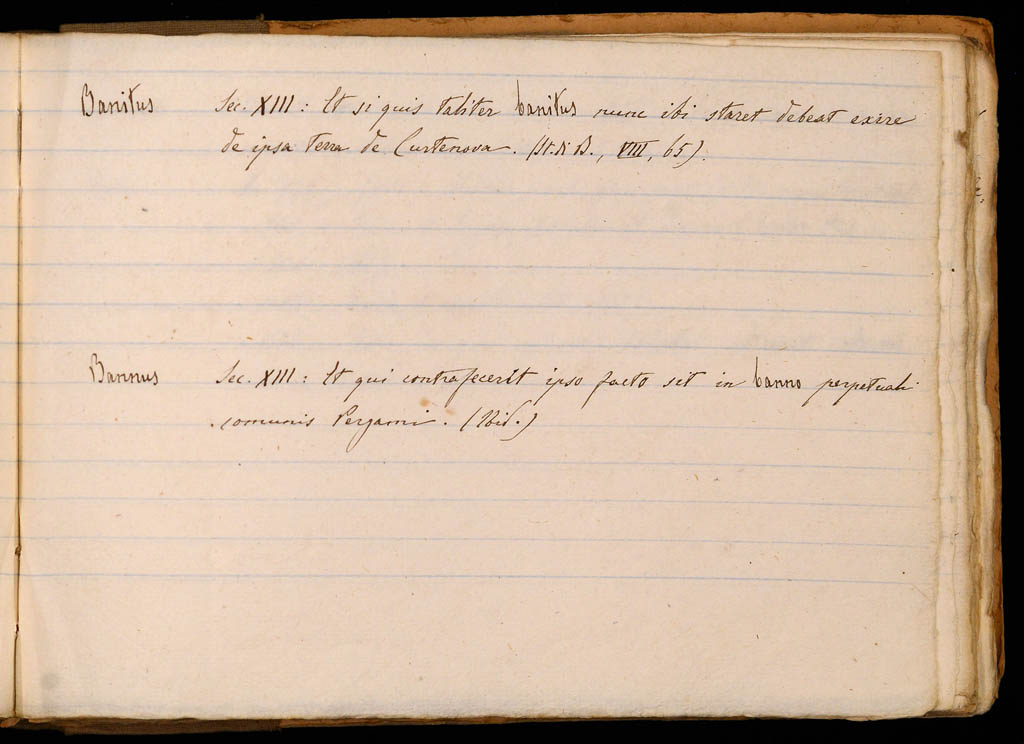 Banitus Sec. XIII : Et si quis taliter banitus nunc ibi staret debeat exire
de ipsa terra de Curtenova. (St. di B., VIII, 65).
Bannus Sec. XIII : Et qui contrafecerit ipso facto sit in banno perpetuali
comunis Pergami. (Ibid.)